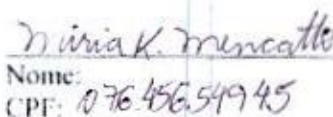 Níria K. Mencatto
Nome:
CPF: 076.456.549 45